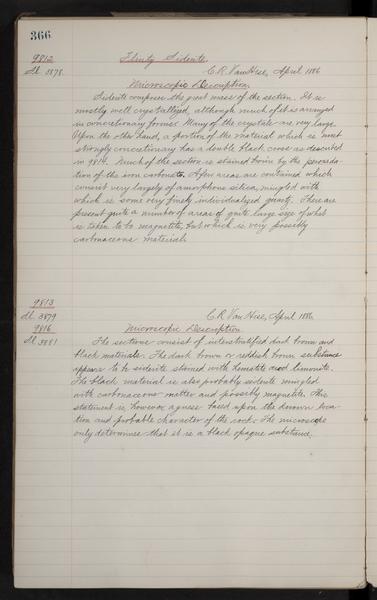 366
9812 Flinty Siderite.
Sl. 3878. C.R. Van Hise, April 1886
Microscopic Description.
Siderite composes the great mass of the section. It is
mostly well crystallized, although much of it is arranged
in concretionary forms. Many of the crystals are very large.
Upon the other hand, a portion of the material which is most
strongly concretionary has a double black cross as described
in 9814. Much of the section is stained brown by the peroxida-
tion of the iron carbonate. A few areas are contained which
consist very largely of amorphous silica, mingled with
which is some very finely individualized quartz. There are
present quite a number of areas of quite large size of what
is taken to be magnetite, but which is very possibly
carbonaceous material.
9813
Sl. 3879 C.R. Van Hise, April 1886
9816 Microscopic Description.
Sl. 3881 The sections consist of interstratified dark brown and
black materials. The dark brown or reddish brown substance
appears to be siderite stained with hematite and limonite.
The black material is also probably siderite mingled
with carbonaceous matter and possibly magnetite. This
statement is however a guess based upon the known loca-
tion and probable character of the rock. The microscope
only determines that it is a black opaque substance.